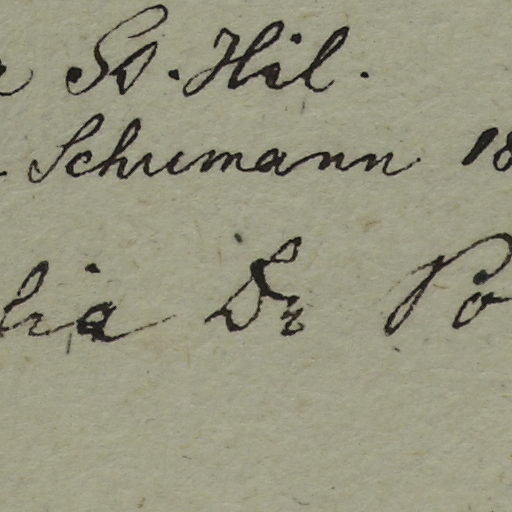 St. Hil.
Schumann 18
lia Dr Po